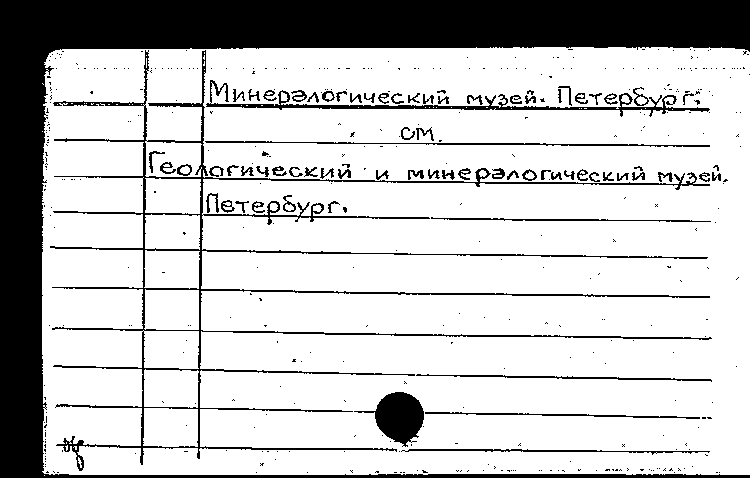 Минералогический музей. Петербург.
см.
Геологический и минералогический музей.
Петербург.